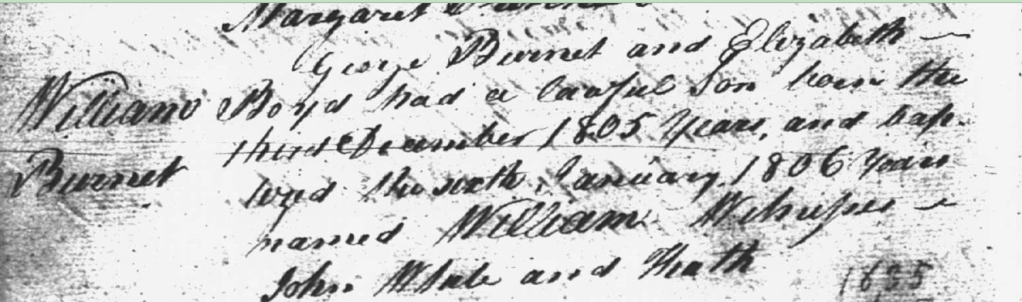 Margaret
George Burnet and Elizabeth —
William Boyd had a lawful Son born the
third December 1805 Years, and bap-
Burnet tized the sixth January 1806 Years
named William Witnesses —
John and
1635